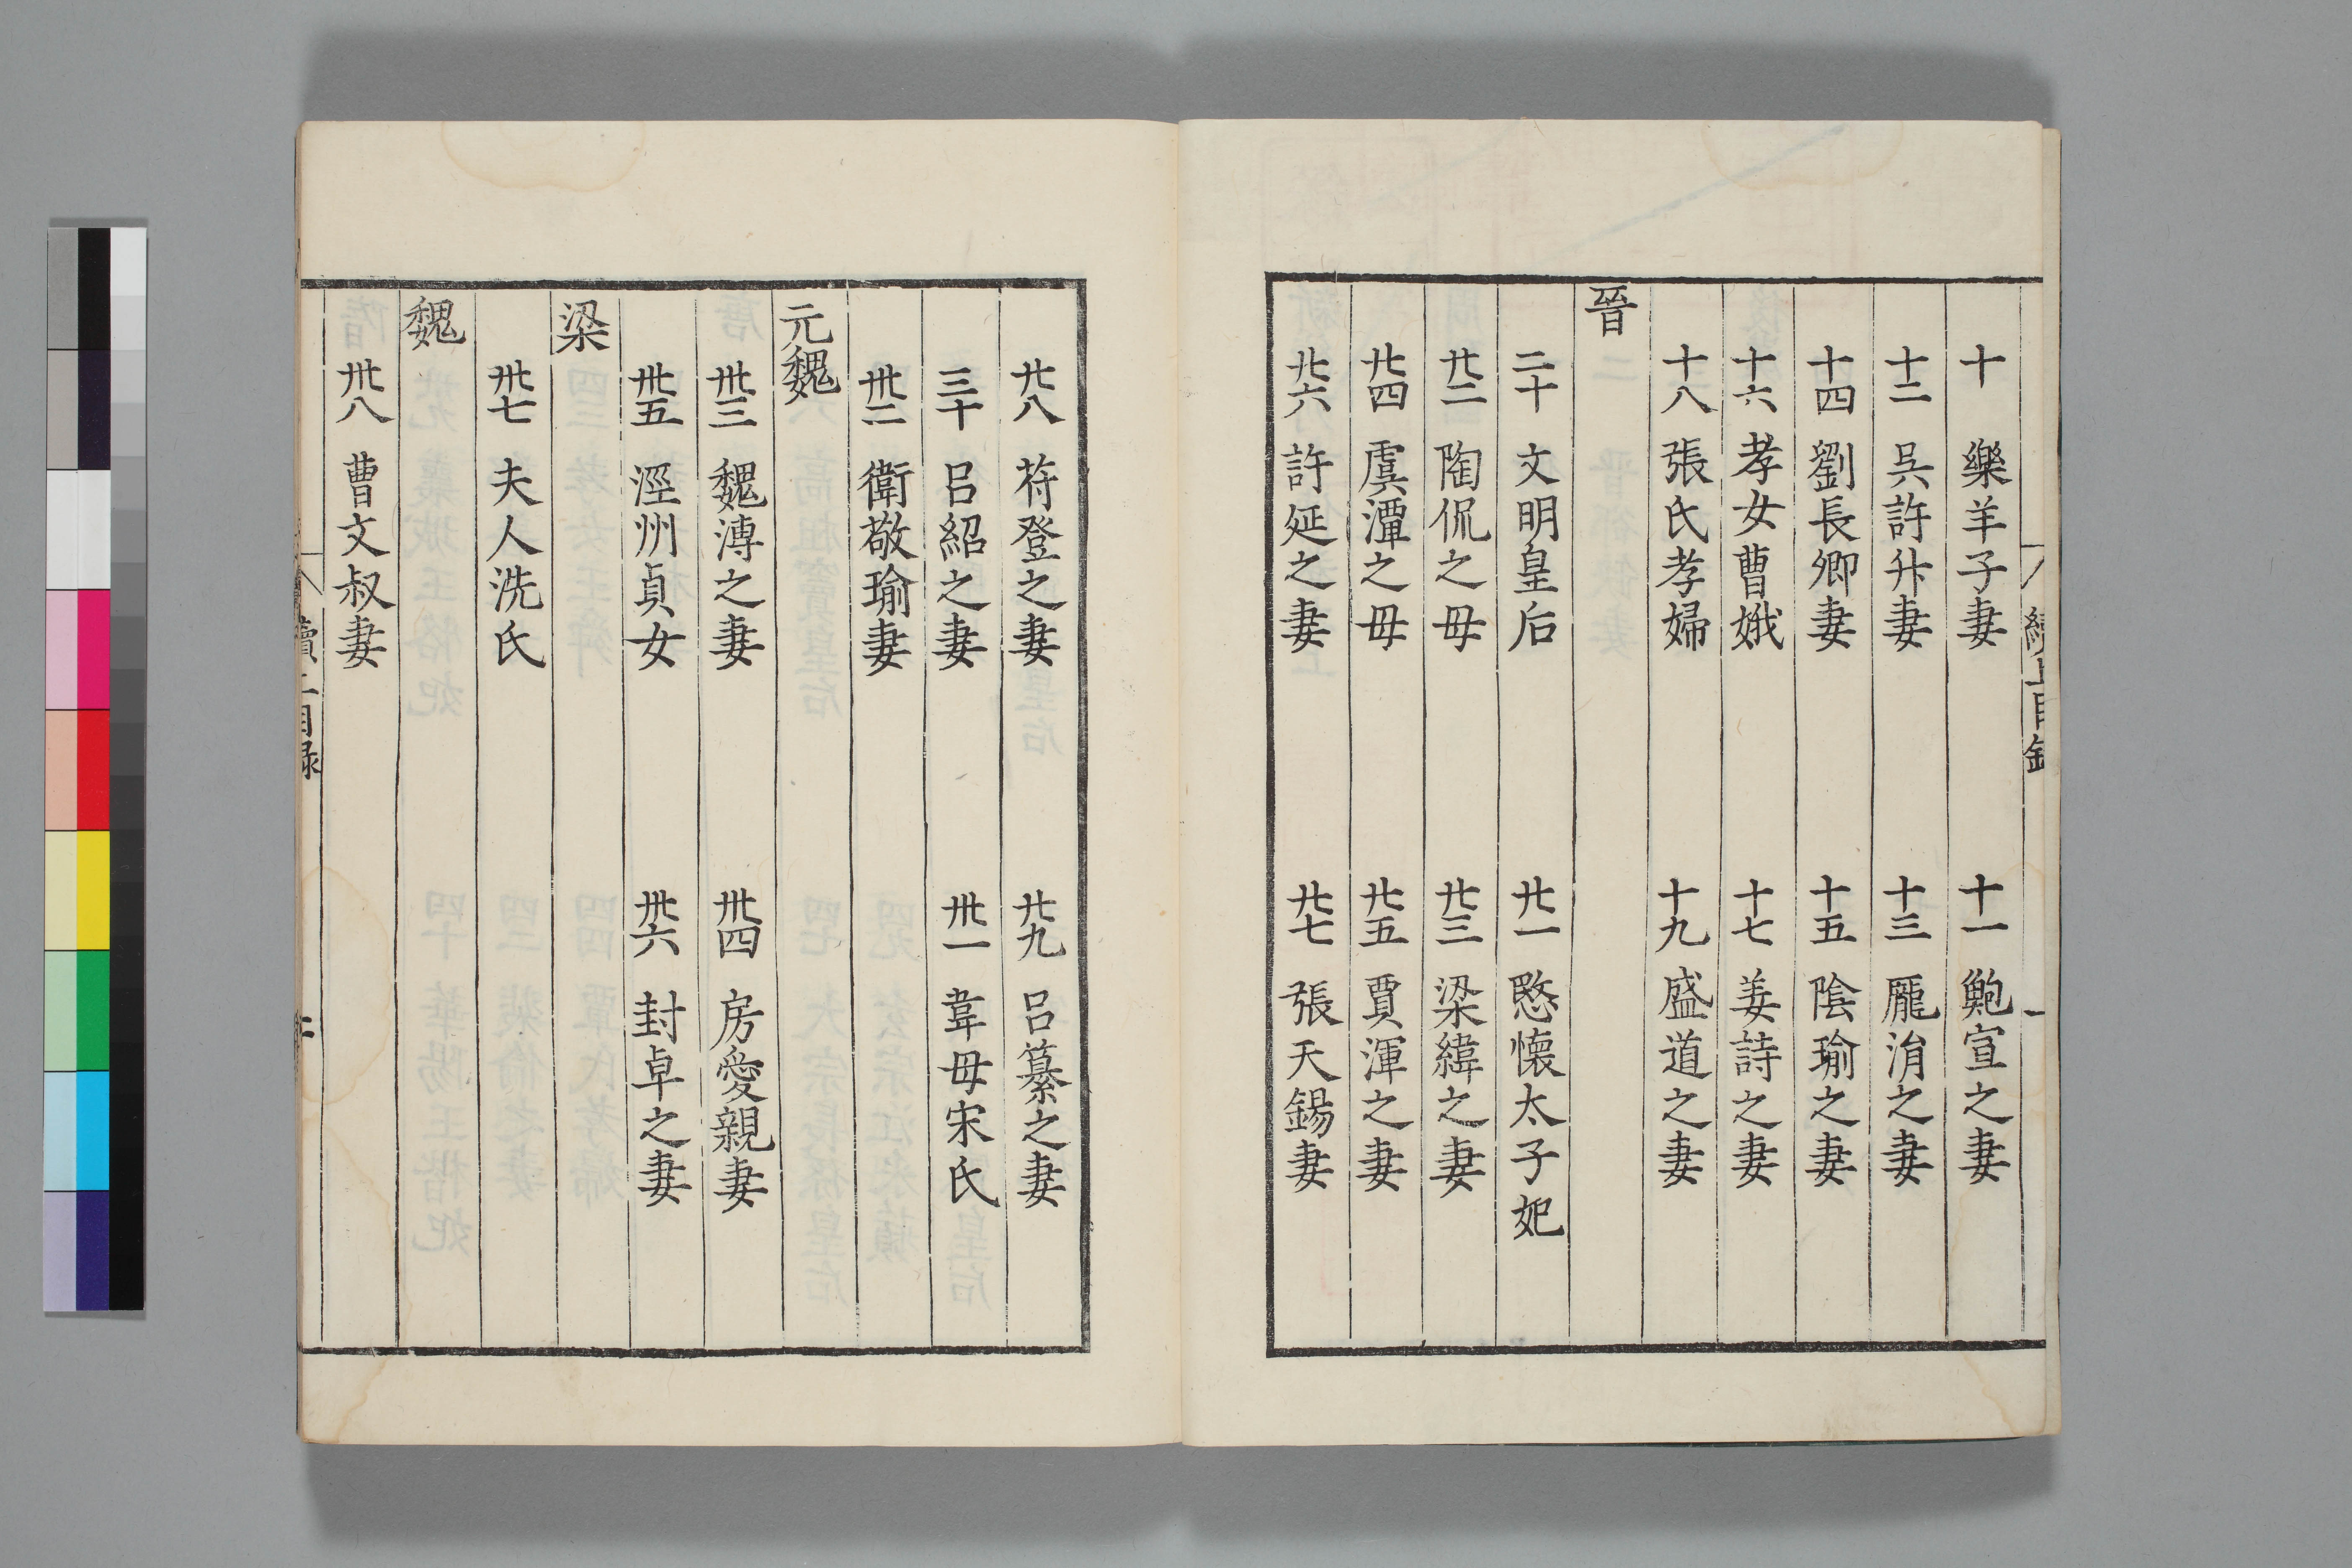 十 樂羊子妻 十一 鮑宣之妻
十二 吳許升妻 十三 龎淯之妻
十四 劉長卿妻 十五 隂瑜之妻
十六 孝女曹娥 十七 姜詩之妻
十八 張氏孝婦 十九 盛道之妻
晉
二十 文明皇后 廿一 愍懷太子妃
廿二 陶侃之母 廿三 梁緯之妻
廿四 虞潭之母 廿五 賈渾之妻
廿六 許延之妻 廿七 張天錫妻
廿八 苻登之妻 廿九 呂纂之妻
三十 呂紹之妻 卅一 韋母宋氏
卅二 衛敬瑜妻
元魏
卅三 魏溥之妻 卅四 房愛親妻
卅五 涇州貞女 卅六 封卓之妻
梁
卅七 夫人洗氏
魏
卅八 曹文叔妻